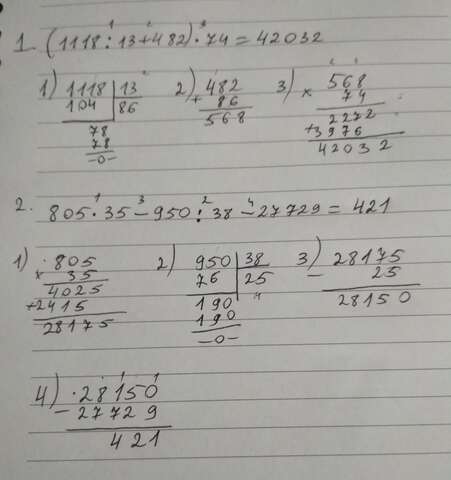 1. (1118:13+482)·74=42032
1) 1118 | 13 2) 482 3) 568
104 | 86 + 86 × 74
78 568 2272
78 +3976
-0- 42032
2. 805·35-950:38-27729=421
1) 805 2) 950 | 38 3) 28175
× 35 76 | 25 - 25
4025 190 28150
+2415 190
28175 -0-
4) 28150
-27729
421